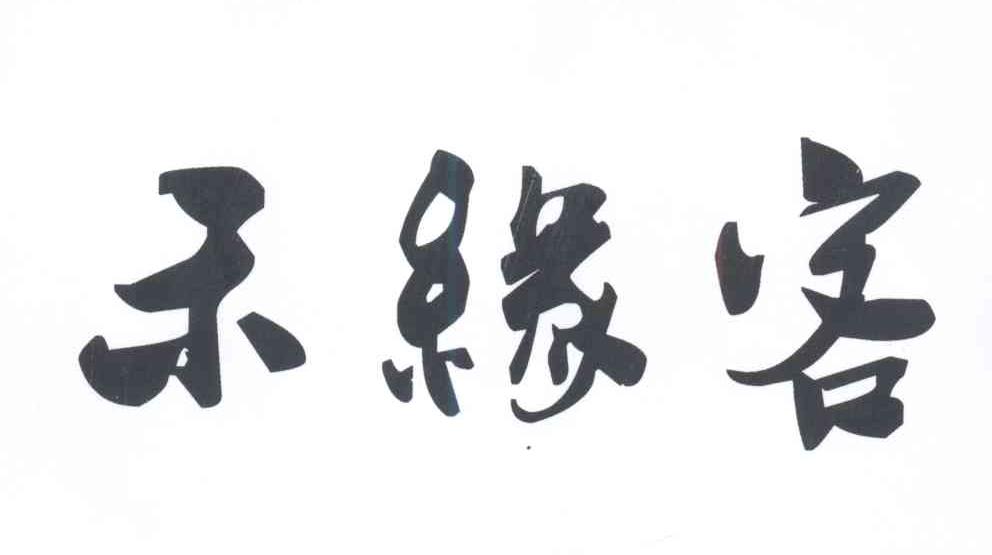 禾緣客